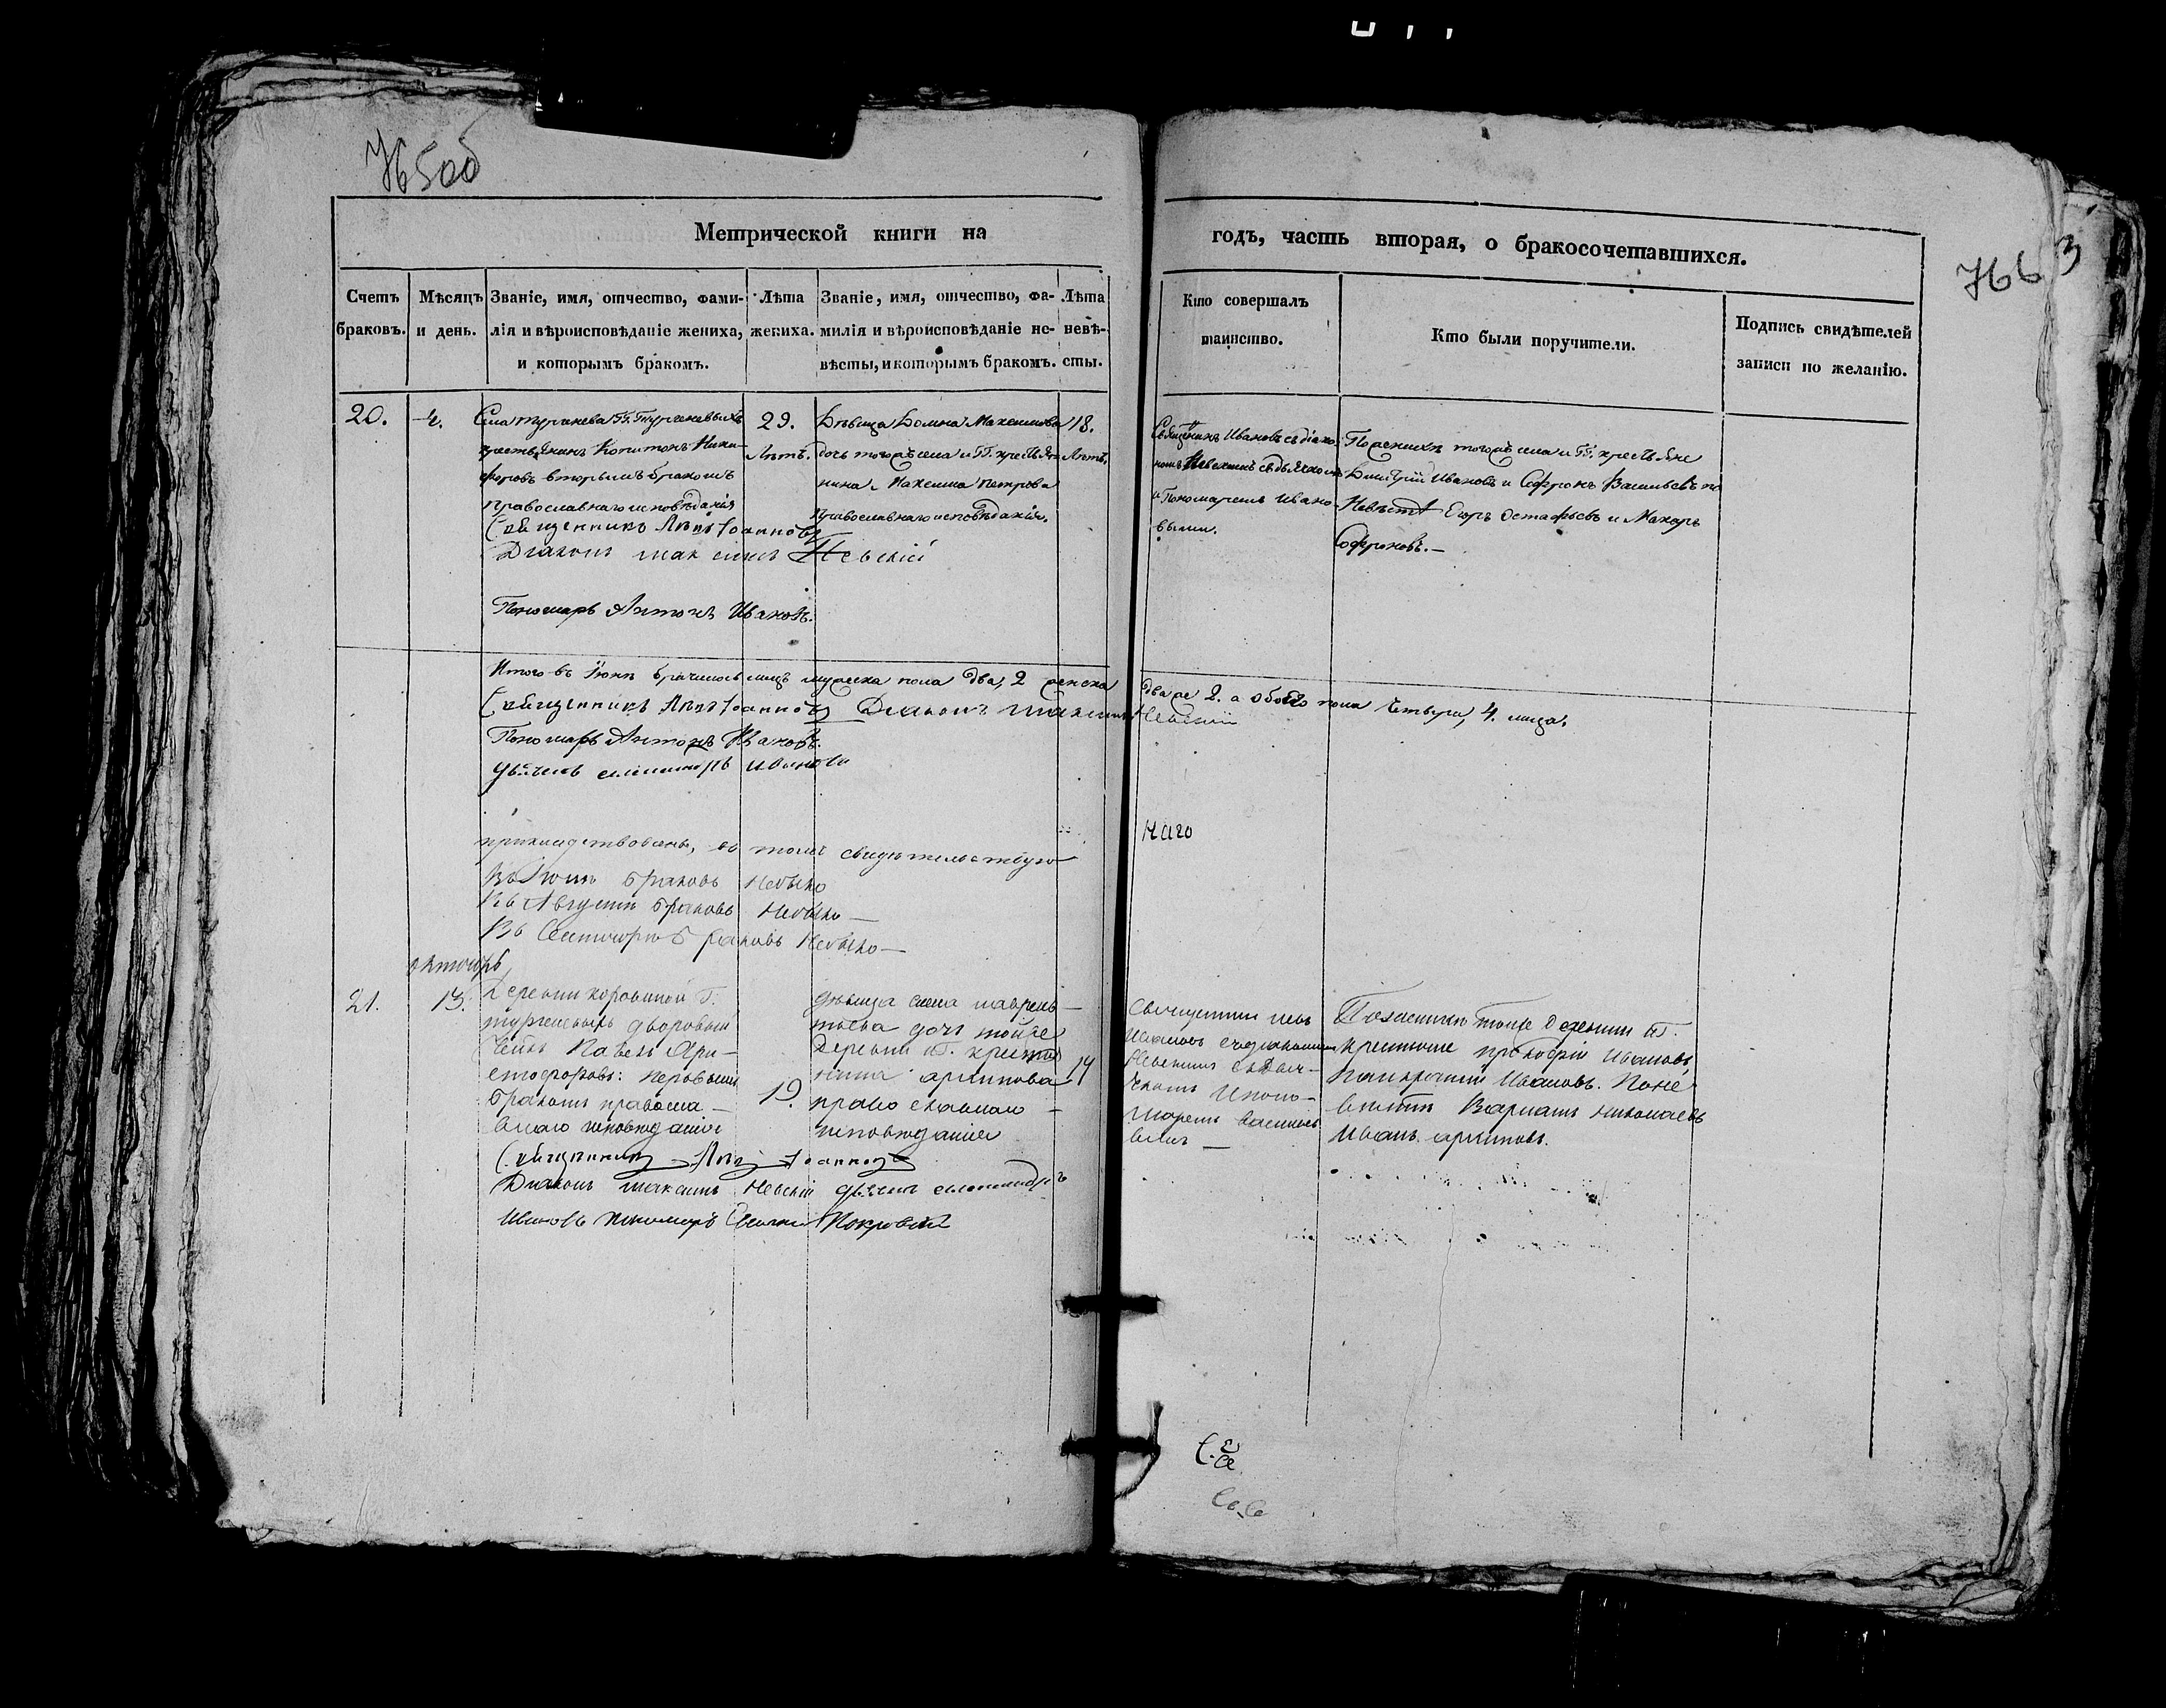 765об
766
3
Метрической книги на
годъ, часть вторая, о бракосочетавшихся.
Счетъ браковъ.
Мѣсяцъ и день.
Званіе, имя, отчество, фами-
лія и вѣроисповѣданіе жениха,
и которымъ бракомъ.
Лѣта
жениха.
Званіе, имя, отчество, фа-
милія и вѣроисповѣданіе не-
вѣсты, и которымъ бракомъ.
Лѣта
невѣ-
сты.
Кто совершалъ
таинство.
Кто были поручители.
Подпись свидѣтелей
записи по желанію.
20.
4.
Села Тургенева ГГ. Тургеневыхъ
крестьянинъ Капитонъ Ники-
форовъ вторымъ бракомъ
православнаго исповѣданія
29.
Лѣтъ.
Дѣвица Домна Максимова
дочь тогожъ села и ГГ. крестьян
нина Максима Петрова
православнаго исповѣданія.
18.
Лѣтъ.
Священникъ Ивановъ съ діако-
номъ Невскимъ съ дьячкомъ
и Пономаремъ Ивано-
выми.
По женихѣ тогожъ села и ГГ. крестьяне
Дмитрій Ивановъ и Софронъ Васильевъ по
Невѣстѣ Егоръ Остафьевъ и Макаръ
Софроновъ.
Священникъ Левъ Іоанновъ
Діаконъ Максимъ Невскій
Пономарь Антонъ Ивановъ.
Итого въ Іюнѣ брачилось лицъ мужеска пола два, 2 женска
дваже 2. а обоего пола четыре, 4. лица.
Священникъ Левъ Іоанновъ Діаконъ Максимъ Невскій
Пономарь Антонъ Ивановъ.
Дьячекъ Александръ Ивановъ
наго
въ томъ свидѣтельствую
Въ Іюлѣ браковъ небыло
Въ Августѣ браковъ небыло
Въ Сентябрѣ браковъ небыло
октябрь
21.
13.
Деревни Коровиной Г.
Тургеневыхъ дворовый
Павелъ Хри-
стофоровъ: первымъ
бракомъ правосла-
внаго исповѣданія
19.
дѣвица Лаврень-
тьева дочь тойже
деревни Г. крестья
нина Архипова
православнаго
исповѣданія
Священникъ Левъ
Ивановъ съ діакономъ
Невскимъ съ дьяч-
комъ и поно-
маремъ
По женихѣ тойже деревни Г.
крестьяне Прокофій Ивановъ,
Панкратій Ивановъ. По не
вѣстѣ Варламъ Николаевъ
Иванъ Архиповъ.
Священникъ Левъ Іоанновъ
Діаконъ Максимъ Невскій дьячекъ Александръ
Ивановъ пономарь Покровскій